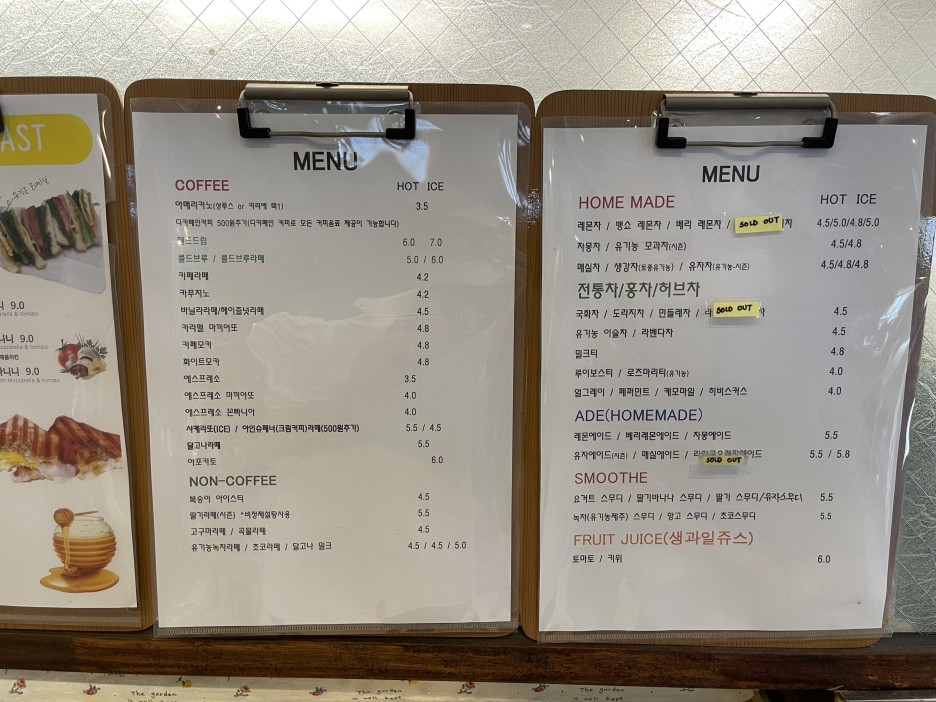 AST
니 9.0
arella & tomato
니니 9.0
ozzarella & tomato
나니니 9.0
Mozzarella & tomato
MENU
COFFEE HOT ICE
아메리카노(산투스 or 키리에 택1) 3.5
디카페인커피 500원추가(디카페인 커피로 모든 커피음료 제공이 가능합니다)
핸드드립 6.0 7.0
콜드브루 / 콜드브루라떼 5.0 / 6.0
카페라떼 4.2
카푸치노 4.2
바닐라라떼/헤이즐넛라떼 4.5
카라멜 마끼아또 4.8
카페모카 4.8
화이트모카 4.8
에스프레소 3.5
에스프레소 마끼아또 4.0
에스프레소 꼰빠니아 4.0
샤케라또(ICE) / 아인슈페너(크림커피)라떼(500원추가) 5.5 / 4.5
달고나라떼 5.5
아포카토 6.0
NON-COFFEE
복숭아 아이스티 4.5
딸기라떼(시즌) *비정제설탕사용 5.5
고구마라떼 / 곡물라떼 4.5
유기농녹차라떼 / 초코라떼 / 달고나 밀크 4.5 / 4.5 / 5.0
MENU
HOME MADE HOT ICE
레몬차 / 뱅쇼 레몬차 / 베리 레몬차 / SOLD OUT 차 4.5/5.0/4.8/5.0
자몽차 / 유기농 모과차(시즌) 4.5/4.8
매실차 / 생강차(토종유기농) / 유자차(유기농-시즌) 4.5/4.8/4.8
전통차/홍차/허브차
국화차 / 도라지차 / 민들레차 / SOLD OUT 차 4.5
유기농 이슬차 / 라벤다차 4.5
밀크티 4.8
루이보스티 / 로즈마리티(유기농) 4.0
얼그레이 / 페퍼민트 / 케모마일 / 히비스커스 4.0
ADE(HOMEMADE)
레몬에이드 / 베리레몬에이드 / 자몽에이드 5.5
유자에이드(시즌) / 매실에이드 / 에이드 5.5 / 5.8
SOLD OUT
SMOOTHE
요거트 스무디 / 딸기바나나 스무디 / 딸기 스무디/유자스무디 5.5
녹차(유기농제주) 스무디 / 망고 스무디 / 초코스무디 5.5
FRUIT JUICE(생과일쥬스)
토마토 / 키위 6.0
The garden
The garden
The garden
is well kept
is well kept